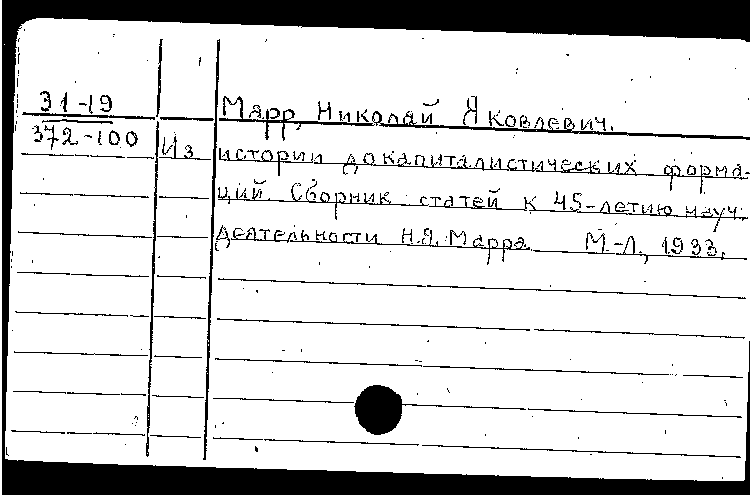 31-19 Марр, Николай Яковлевич.
372-100 Из истории докапиталистических форма-
ций. Сборник статей к 45-летию науч.
деятельности Н.Я. Марра М.-Л., 1933.